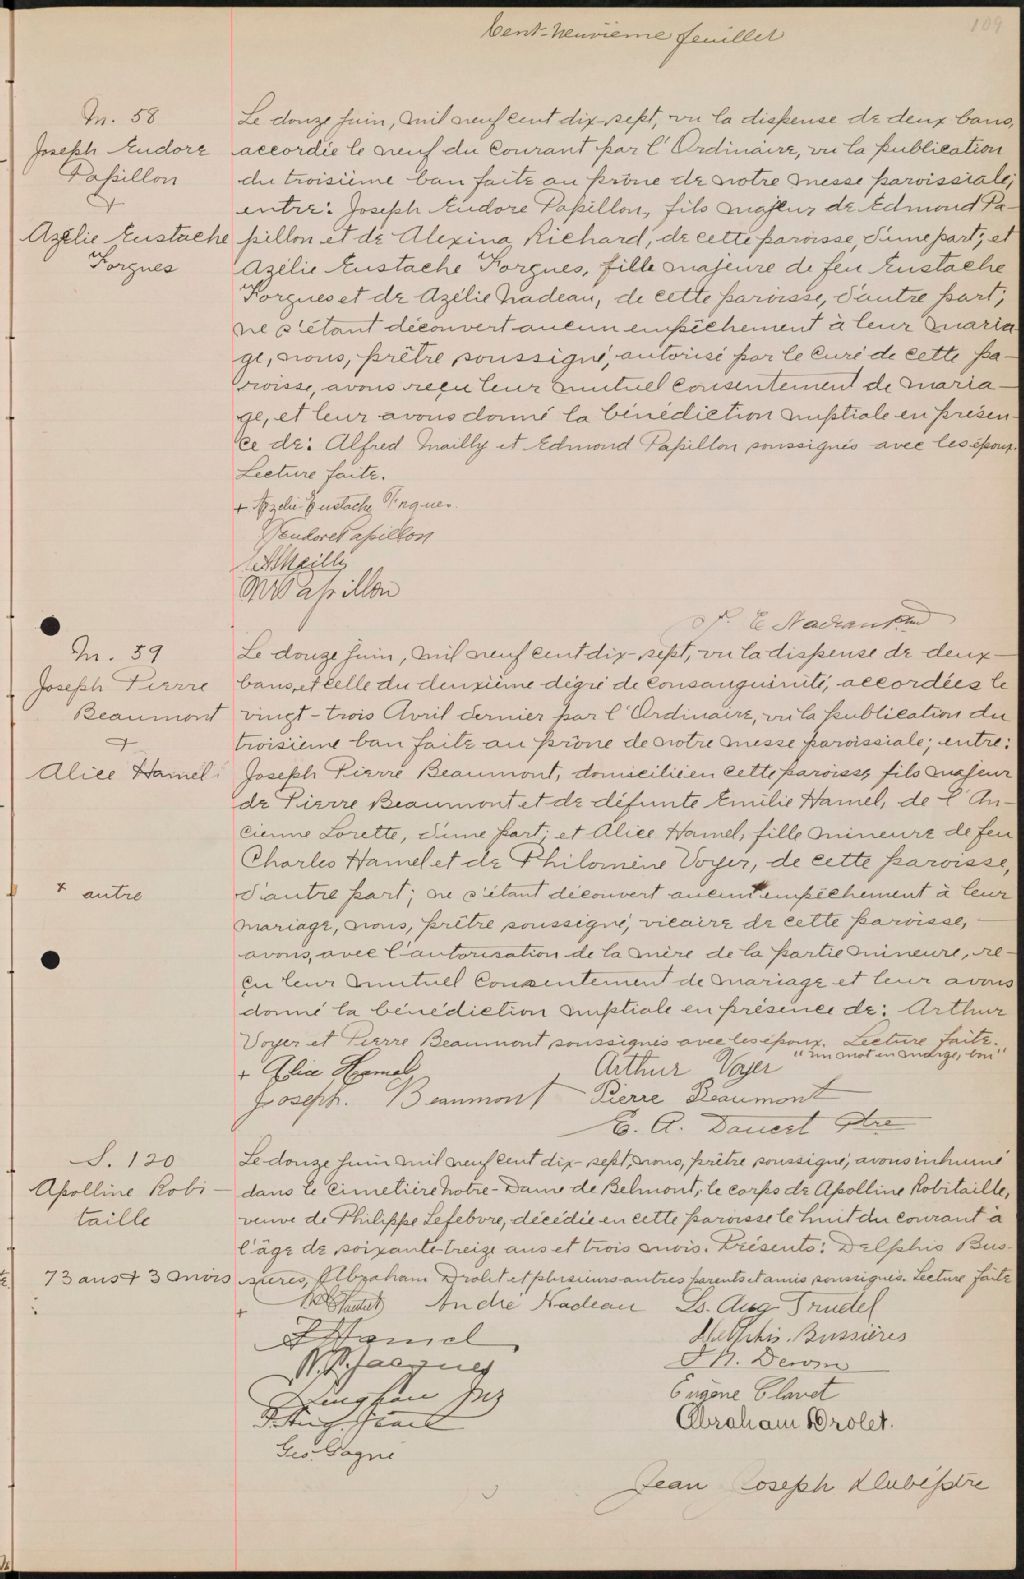 Cent-neuvième feuillet
109
M. 58
Joseph Eudore
Papillon
+
Azélie Eustache
Forgues
Le douze juin, mil neuf cent dix-sept, vu la dispense de deux bans,
accordée le neuf du courant par l'Ordinaire, vu la publication
du troisième ban faite au prône de notre messe paroissiale;
entre: Joseph Eudore Papillon, fils majeur de Edmond Pa-
pillon et de Alexina Richard, de cette paroisse, d'une part; et
Azélie Eustache Forgues, fille majeure de feu Eustache
Forgues et de Azélie Nadeau, de cette paroisse, d'autre part;
ne s'étant découvert aucun empêchement à leur maria-
ge, nous, prêtre soussigné, autorisé par le curé de cette pa-
roisse, avons reçu leur mutuel consentement de maria-
ge, et leur avons donné la bénédiction nuptiale en présen-
ce de: Alfred Mailly et Edmond Papillon soussignés avec les époux.
Lecture faite.
+ Azélie-Eustache Forgues.
J Eudore Papillon
Mailly
Papillon
J. E. Nadeau Ptre
M. 59
Joseph Pierre
Beaumont
+
Alice Hamel
Le douze juin, mil neuf cent dix-sept, vu la dispense de deux
bans, et celle du deuxième dégré de consanguinité, accordées le
vingt-trois Avril dernier par l'Ordinaire, vu la publication du
troisième ban faite au prône de notre messe paroissiale; entre:
Joseph Pierre Beaumont, domicilié en cette paroisse, fils majeur
de Pierre Beaumont et de défunte Emilie Hamel, de l'An-
cienne Lorette, d'une part; et Alice Hamel, fille mineure de feu
Charles Hamel et de Philomène Voyer, de cette paroisse,
x autre
d'autre part; ne s'étant découvert aucun x empêchement à leur
mariage, nous, prêtre soussigné, vicaire de cette paroisse, -
avons, avec l'autorisation de la mère de la partie mineure, re-
çu leur mutuel consentement de mariage et leur avons
donné la bénédiction nuptiale en présence de: Arthur
Voyer et Pierre Beaumont soussignés avec les époux. Lecture faite.
"un mot en marge, bon"
+ Alice Hamel Arthur Voyer
Joseph. Beaumont Pierre Beaumont
E. A. Doucet Ptre
S. 120
Apolline Robi-
taille
73 ans + 3 mois
Le douze juin mil neuf cent dix-sept, nous, prêtre soussigné, avons inhumé
dans le cimetière Notre-Dame de Belmont, le corps de Apolline Robitaille,
veuve de Philippe Lefebvre, décédée en cette paroisse le huit du courant à
l'âge de soixante-treize ans et trois mois. Présents: Delphis Bus-
sières, Abraham Drolet et plusieurs autres parents et amis soussignés. Lecture faite
+ André Nadeau Ls. Aug Trudel
Hamel Delphis. Bussières
Jacques
Eugène Clavet
Abraham Drolet.
Geo. Gagné
Jean Joseph Dubé, ptre